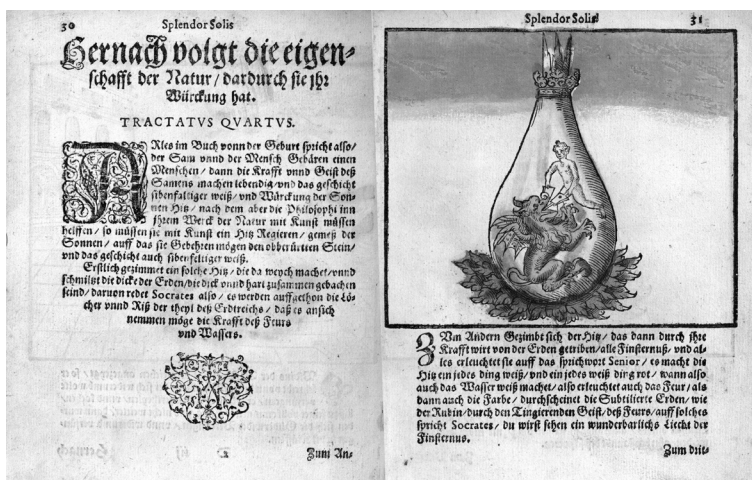 30 Splendor Solis
Hernach volgt die eigen-
schafft der Natur / dardurch sie jhr
Würckung hat.
TRACTATVS QVARTVS.
ARles im Buch vonn der Geburt spricht also /
der Sam vnnd der Mensch Gebären einen
Menschen / dann die Krafft vnnd Geist deß
Samens machen lebendig / vnd das geschicht
sibenfaltiger weiß / vnd Würckung der Son-
nen Hitz / nach dem aber die Philosophi inn
jhrem Werck der Natur mit Kunst müssen
helffen / so müssen sie mit Kunst ein Hitz Regieren / gemeß der
Sonnen / auff das sie Gebehren mögen den obberürten Stein /
vnd das geschicht auch sibenfeltiger weiß.
Erstlich gezimmet ein solche Hitz / die da weych machet / vnnd
schmiltzt die dicke der Erden / die dick vnnd hart zusammen gebachen
seind / daruon redet Socrates also / es werden auffgethon die Lö-
cher vnnd Riß der theyl deß Erdtreichs / daß es an sich
nemmen möge die Krafft deß Feurs
vnd Wassers.
Zum An-
Splendor Solis 31
ZVm Andern Gezimbt sich der Hitz / das dann durch jhre
Krafft wirt von der Erden getriben / alle Finsternuß / vnd al-
les erleuchtet sie auff das sprichwort Senior / es macht die
Hitz ein jedes ding weiß / vnd ein jedes weiß ding rot / wann also
auch das Wasser weiß machet / also erleuchtet auch das Feur / als
dann auch die Farbe / durchscheinet die Subtilierte Erden / wie
der Rubin / durch den Tingierenden Geist / deß Feurs / auff solches
spricht Socrates / du wirst sehen ein wunderbarlichs Liecht der
Finsternus.
Zum drit-